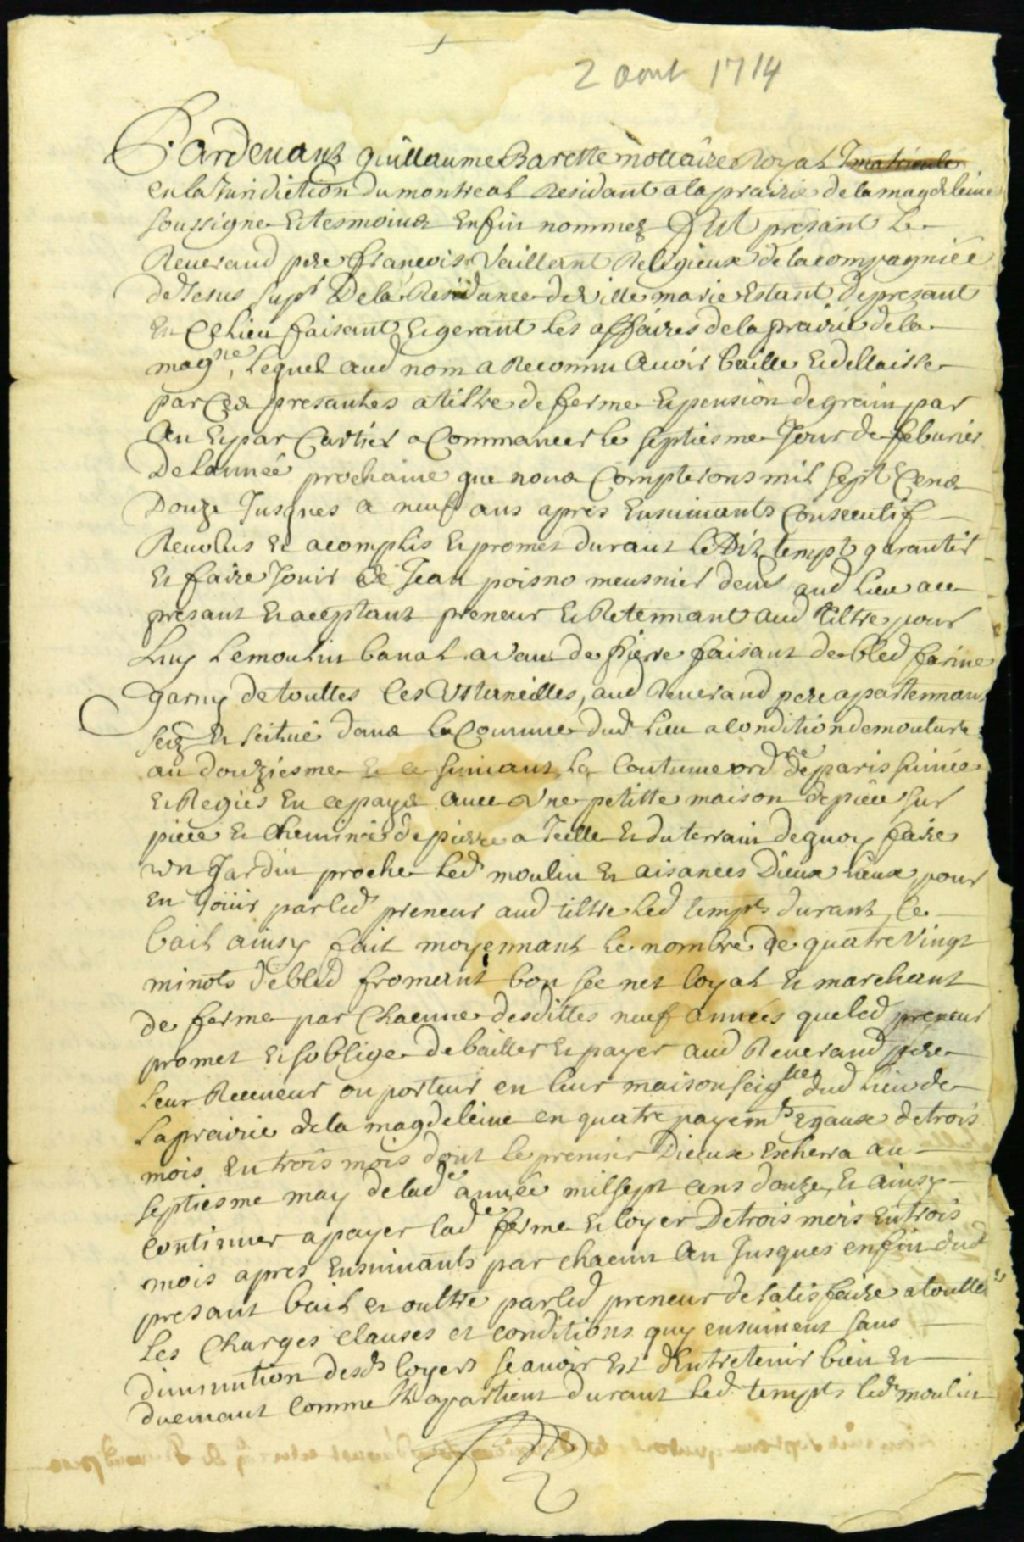 2 aout 1714
Pardevant Guillaume Barette nottaire Royal Imatriculé
en la Juridiction du montreal Residant a la prairie de la magdeleine
soussigné Et tesmoins Enfin nommez Fut presant Le
Reverand pere francois Vaillant Religieux de la compagniée
de Jesus supr De la Residance de Ville marie Estant De presant
En Ce lieu faisant Et gerant les affaires de la prairie de la
magne, Lequel aud nom a Reconnu Avoir baillé Et dellaissé
par Ces presantes a tiltre de ferme Et pension de grain par
An Et par Cartier a Commancer le septiesme Jour de feburier
De lannéé prochaine que nous Compterons mil sept Cens
Douze Jusques a neuf ans apres Ensuivants Consecutif
Revolus Et acomplis Et promet durant Le Dit temps garantir
Et faire Jouir de Jean poisno meusnier demt aud Lieu a ce
presant Et aceptant preneur Et Retennant aud tiltre pour
Luy Le moulin banal a vent de pierre faisant de bled farine
garny de touttes Ces Ustancilles, aud Reverand pere apartennant
seigr Et scitué dans La Commune dud Lieu a condition de mouture
au douziesme Et ce suivant la Coutume ordre de paris suiviée
Et Regiés En ce pays avec Une petitte maison de piéce sur
piéce Et Cheminée de pierre a Icelle Et du terrain de quoy faire
un Jardin proche led moulin Et aisances Dieux Lieux pour
En Joüir par led preneur aud tiltre Led temps durant, Ce
bail ainsy fait moyennant le nombre de quatre Vingt
minots de bled fromant bon sec net loyal Et marchant
de ferme par Chacune desdittes neuf années que led preneur
promet Et soblige de bailler Et payer aud Reverand pere
Leur Receveur ou porteur en leur maison seiglle dud Lieu de
La prairie de la magdeleine en quatre payemts Egaux de trois
mois En trois mois dont le premier Diceux Escherra au
septiesme may de lade année mil sept cens douze, Et ainsy
Continuer a payer lade ferme Et loyer De trois mois En trois
mois apres Ensuivants par chacun An Jusques enfin dud
presant bail et oultre par led preneur de satisfaire a touttes
Les Charges clauses et conditions quy ensuivent sans
Diminution desds loyers scavoir Est dEntretenir bien Et
Duemant Comme Il apartient durant Led temps led moulin